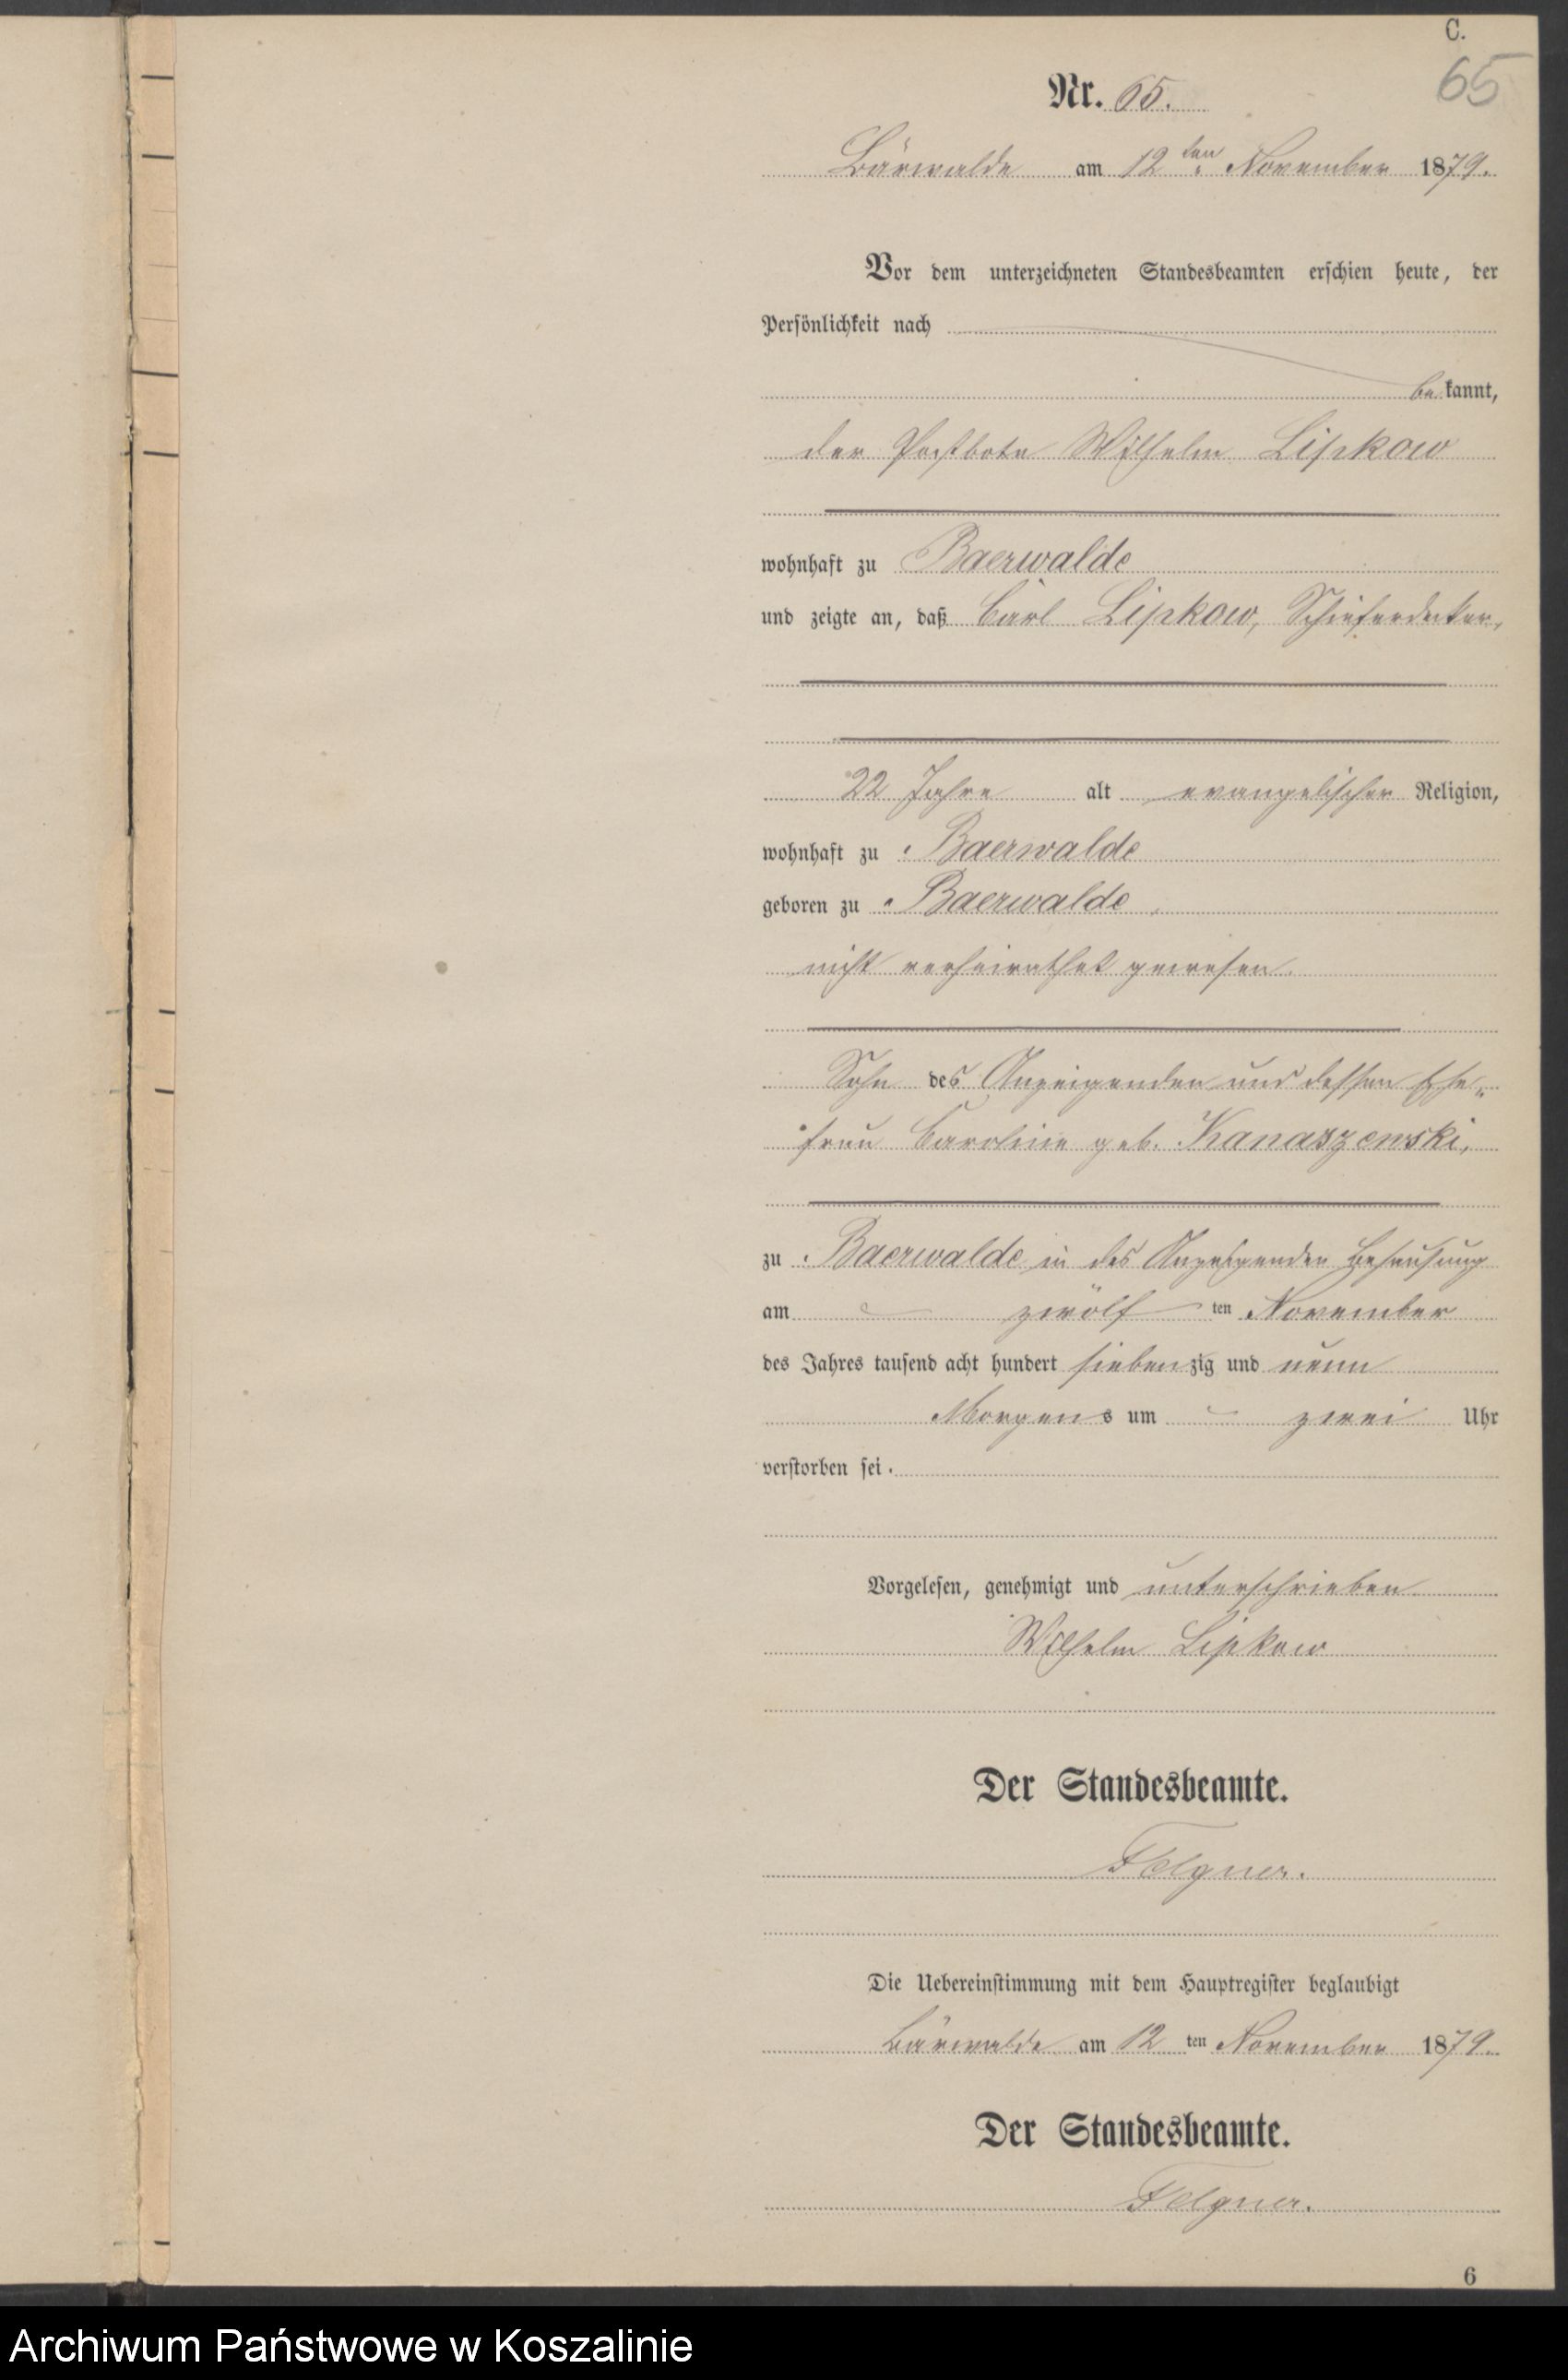 C.
65
Nr. 65.
Bärwalde am 12ten November 1879.
Vor dem unterzeichneten Standesbeamten erschien heute, der
Persönlichkeit nach
bekannt,
der Postbote Wilhelm Lipkow
wohnhaft zu Baerwalde
und zeigte an, daß Carl Lipkow, Schieferdecker,
22 Jahre alt evangelischer Religion,
wohnhaft zu Baerwalde
geboren zu Baerwalde,
nicht verheirathet gewesen.
Sohn des Anzeigenden und dessen Ehe„
frau Caroline geb. Kanaszewski,
zu Baerwalde in des Anzeigenden Behausung
am zwölf ten November
des Jahres tausend acht hundert siebenzig und neun
Morgens um zwei Uhr
verstorben sei.
Vorgelesen, genehmigt und unterschrieben
Wilhelm Lipkow
Der Standesbeamte.
Felgner.
Die Uebereinstimmung mit dem Hauptregister beglaubigt
Bärwalde am 12 ten November 1879.
Der Standesbeamte.
Felgner.
6
Archiwum Państwowe w Koszalinie